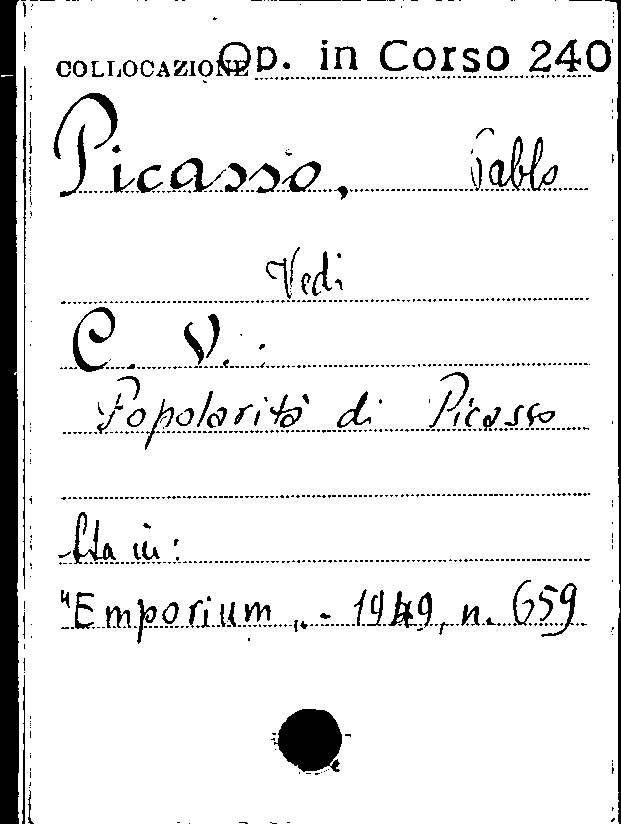 COLLOCAZIONE Op. in Corso 240
Picasso, Pablo
Vedi
C. V. :
Popolarità di Picasso
Sta in :
"Emporium„ - 1949, n. 659